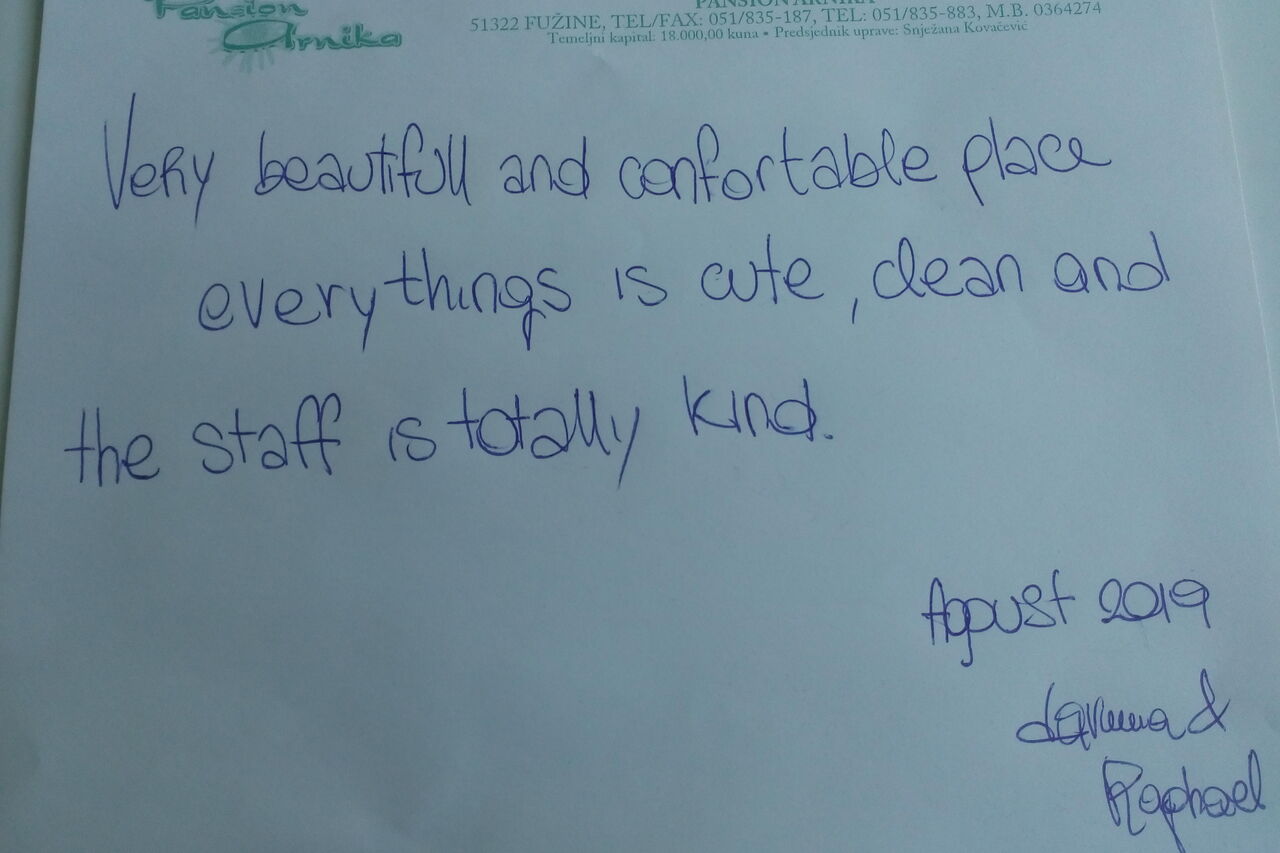 Pansion
Arnika
PANSION ARNIKA
51322 FUŽINE, TEL/FAX: 051/835-187, TEL: 051/835-883, M.B. 0364274
Temeljni kapital: 18.000,00 kuna • Predsjednik uprave: Snježana Kovačević
Very beautifull and confortable place
everythings is cute, clean and
the staff is totally kind.
August 2019
&
Raphael